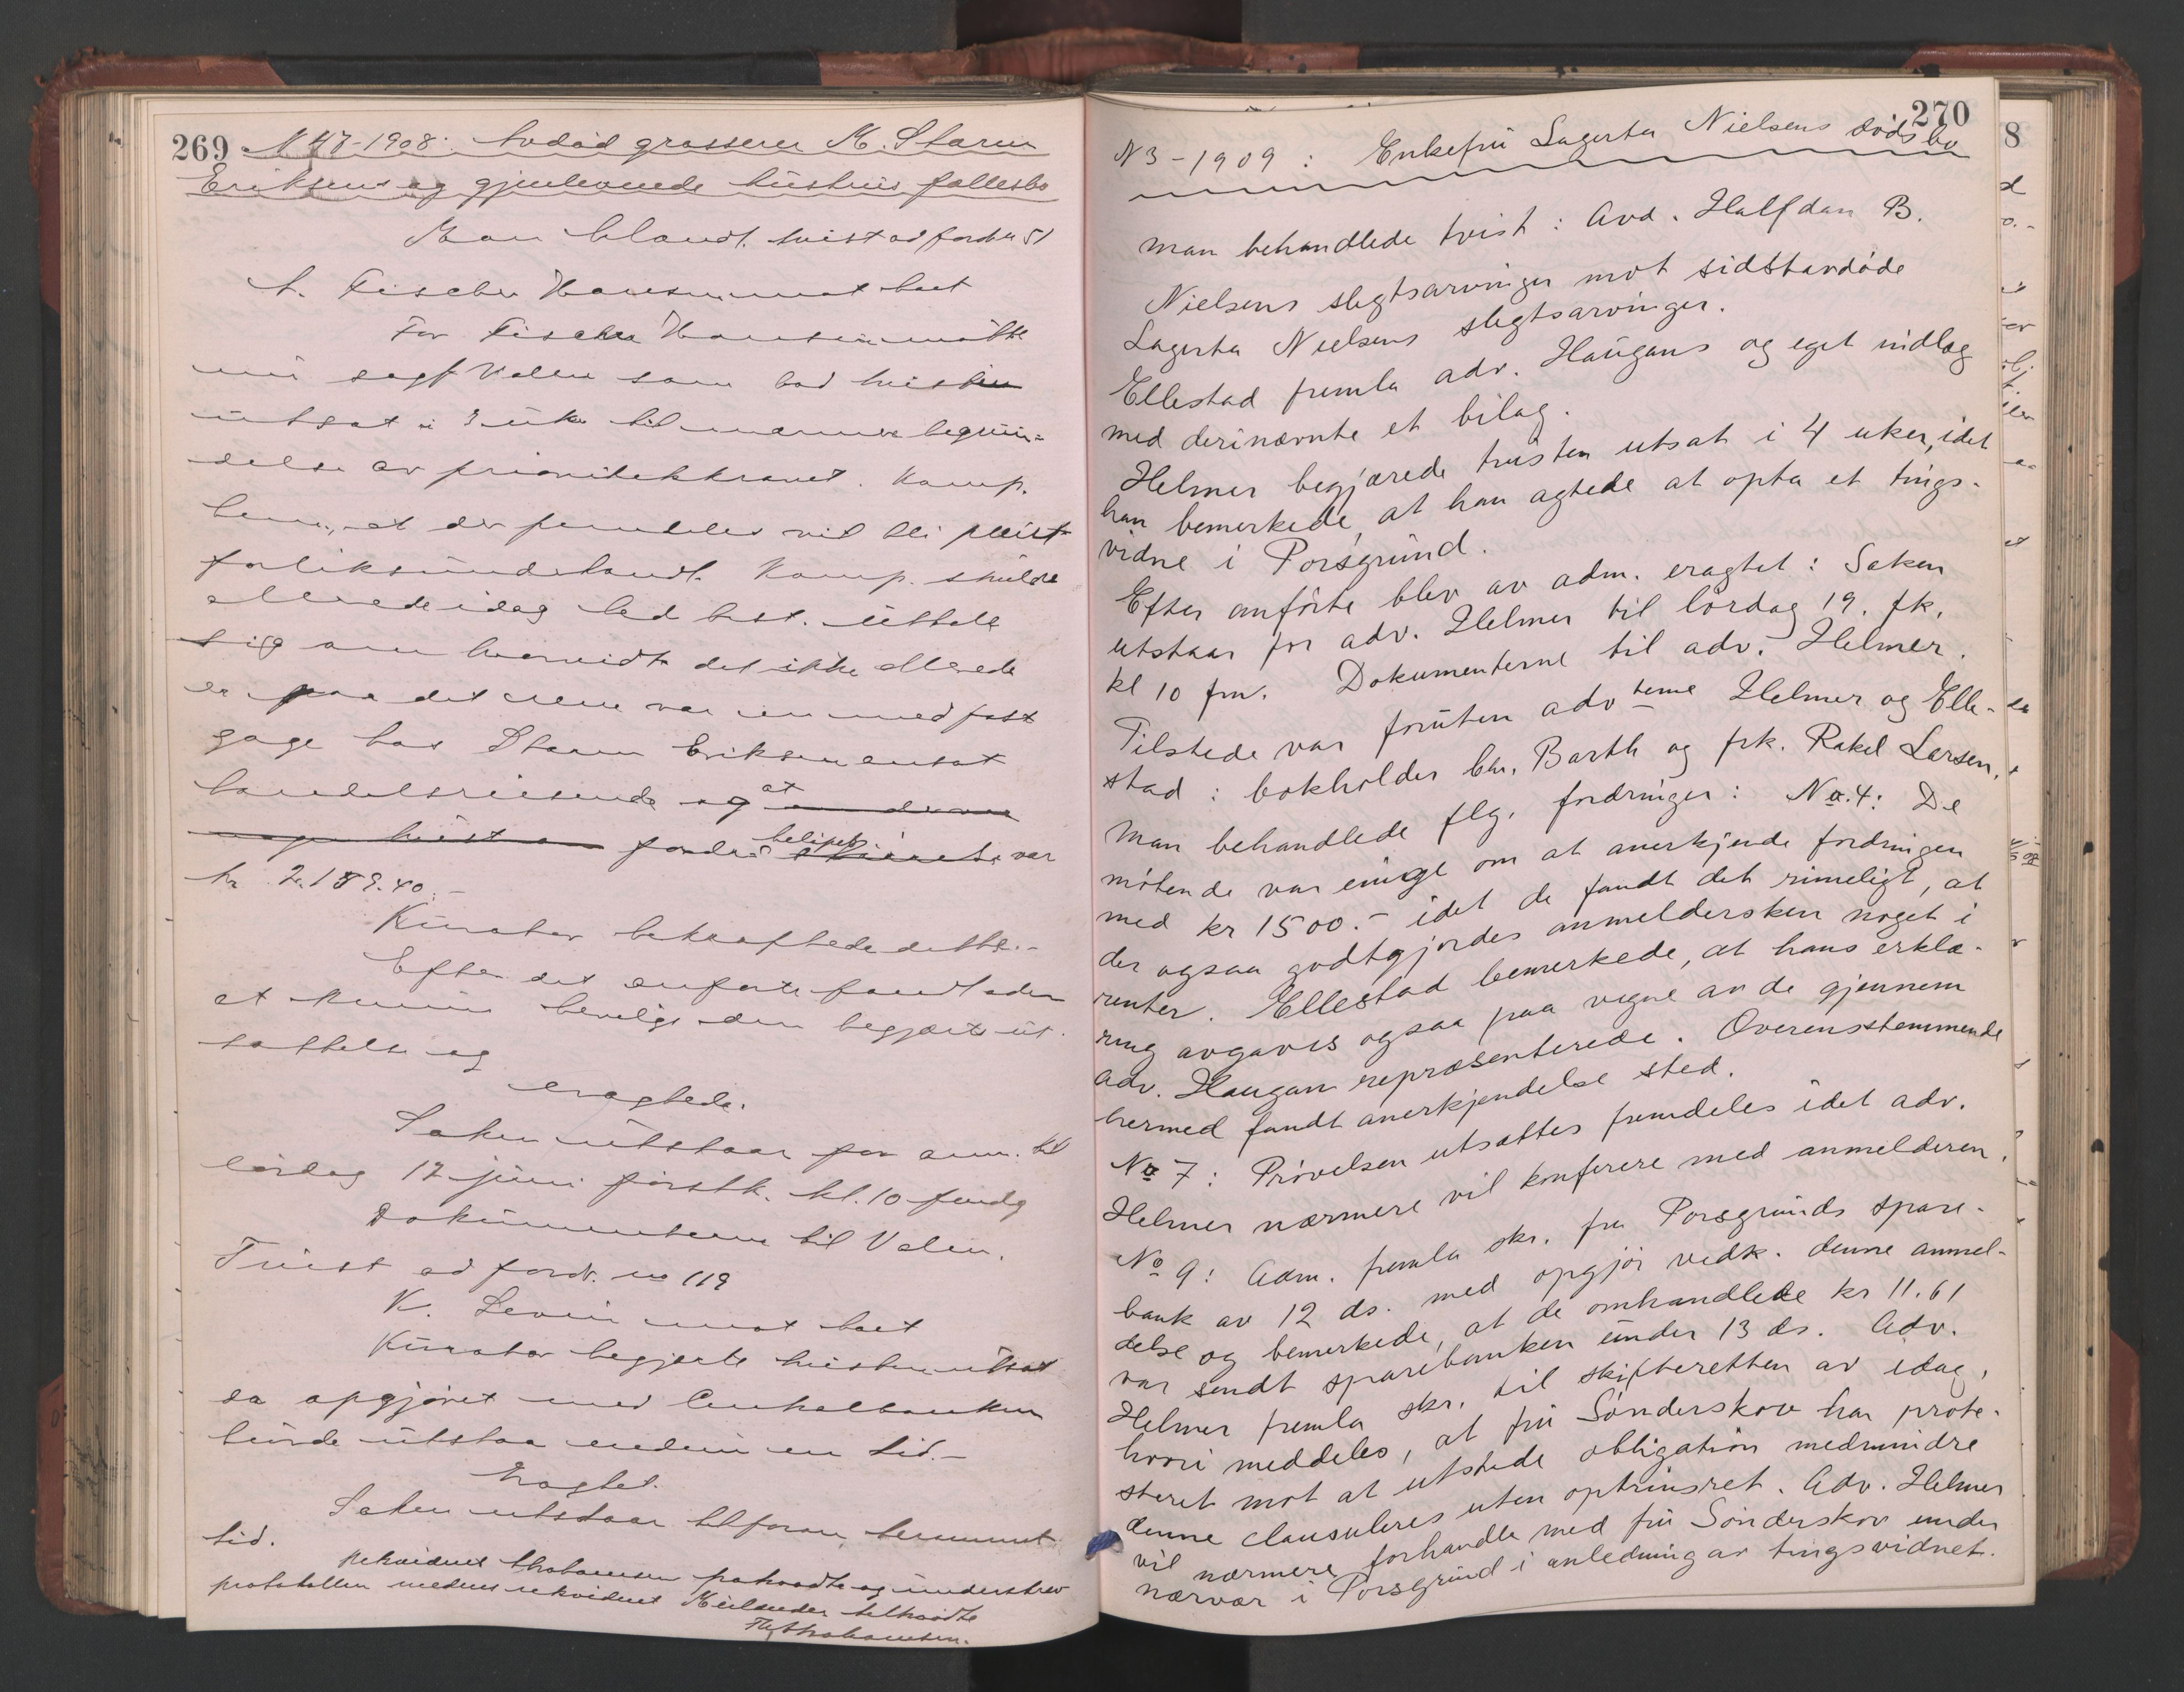 269 N 47-1908: Avdød grosserer M. Storm
Eriksens og gjenlevende hustrus fællesbo
Man behandl. tvist ad fordr. 51
A. Fischer Hansen mot boet
For Fischer Hansen møtte
nu sagf. Valen som bad tvisten
utsat i 3 uker til nærmere begrun=
delse av prioritetskravet. Komp.
bem., at der fremdeles vil bli pleiet
forliksunderhandl. Komp. skulde
allerede idag bed best. uttale
sig om hvorvidt det ikke allerede
er paa det rene var en med fast
gage hos Storm Eriksen ansat
handelsreisende og at
fordr. beløpet var
kr. 2.189.40.-
Kurator bekræftede dette.-
Efter det anførte fandt adm
at kunne bevilge den begjærte ut-
sættelse og
eragtede.
Saken utstaar for anm. til
lørdag 12 juni førstk. kl. 10 fmdg
Dokumenterne til Valen.
Tvist ad fordr. no 119
K. Levin mot boet
Kurator begjærte tvisten utsat
da opgjøret med Centralbanken
burde utstaa endnu en tid.-
Eragtet.
Saken utstaar til foran berammet
tid.
Rekvident Abrahamsen paahørte og underskrev
protokollen medens rekvident tilhørte
Abrahamsen.
270
N 3-1909: Enkefru Lagerta Nielsens dødsbo
Man behandlede tvist: Avd. Halfdan B.
Nielsens slegtsarvinger mot sidstavdøde
Lagerta Nielsens slegtsarvinger.
Ellestad fremla adv. Haugans og eget indlæg
med derinævnte et bilag.
Helmer begjærede tvisten utsat i 4 uker, idet
han bemerkede, at han agtede at opta et tings-
vidne i Porsgrund.
Efter anførte blev av adm. eragtet: Saken
utstaar for adv. Helmer til lørdag 19. fk.
kl 10 fm. Dokumenterne til adv. Helmer.
Tilstede var foruten advterne Helmer og Elle-
stad: bokholder Chr. Barth og frk. Rakel Larsen.
Man behandlede flg. fordringer: No. 4: De
møtende var enige om at anerkjende fordringen
med kr 1500.- idet de fandt det rimeligt, at
der ogsaa godtgjordes anmeldersken noget i
renter. Ellestad bemerkede, at hans erklæ-
ring avgaves ogsaa paa vegne av de gjennem
adv. Haugan repræsenterede. Overensstemmende
hermed fandt anerkjendelse sted.
No 7: Prøvelsen utsattes fremdeles idet adv.
Helmer nærmere vil konferere med anmelderen.
No 9: Adm. fremla skr. fra Porsgrunds spare-
bank av 12 ds. med opgjør vedk. denne anmel-
delse og bemerkede, at de omhandlede kr 11.61
var sendt sparebanken under 13 ds. Adv.
Helmer fremla skr. til skifteretten av idag,
hvori meddeles, at fru Sønderskov har prote-
steret mot at utstede obligation medmindre
denne clausuleres uten optrinsret. Adv. Helmer
vil nærmere forhandle med fru Sønderskov under
nærvær i Porsgrund i anledning av tingsvidnet.